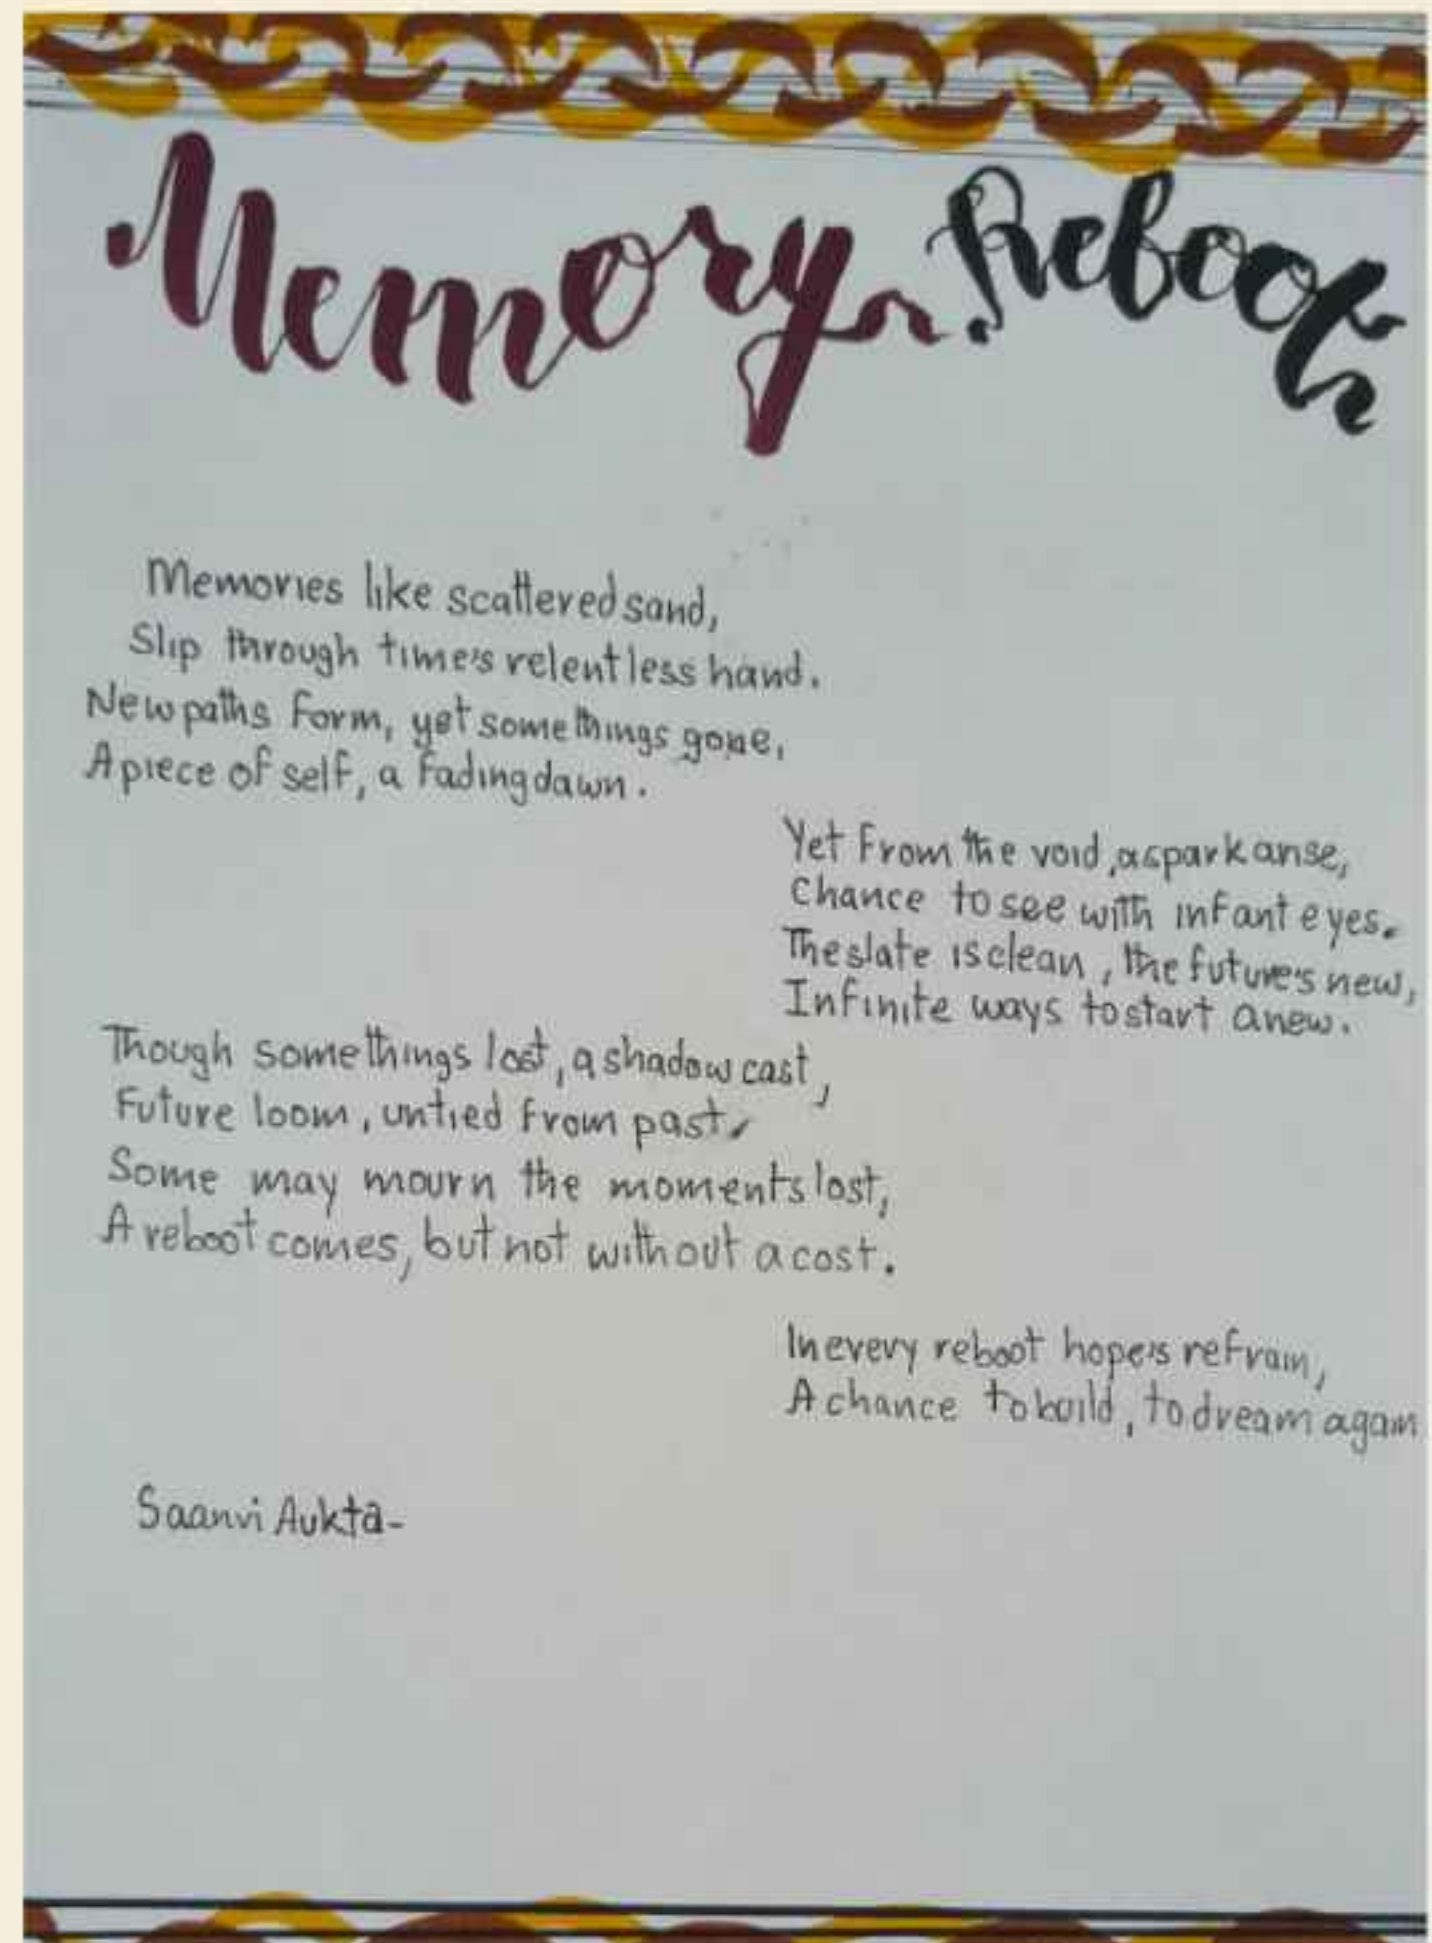 Memory Reboot
Memories like scattered sand,
Slip through time's relentless hand.
New paths form, yet somethings gone,
A piece of self, a fading dawn.
Yet from the void, a spark arise,
Chance to see with infant eyes.
The slate is clean, the future's new,
Infinite ways to start anew.
Though somethings lost, a shadow cast,
Future loom, untied from past,
Some may mourn the moments lost,
A reboot comes, but not without a cost.
In every reboot hope's refrain,
A chance to build, to dream again
Saanvi Aukta-